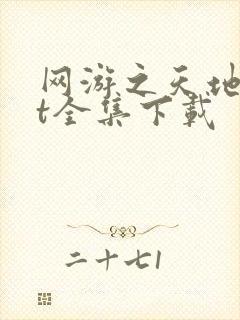 网游之天地
t全集下载
二十七1